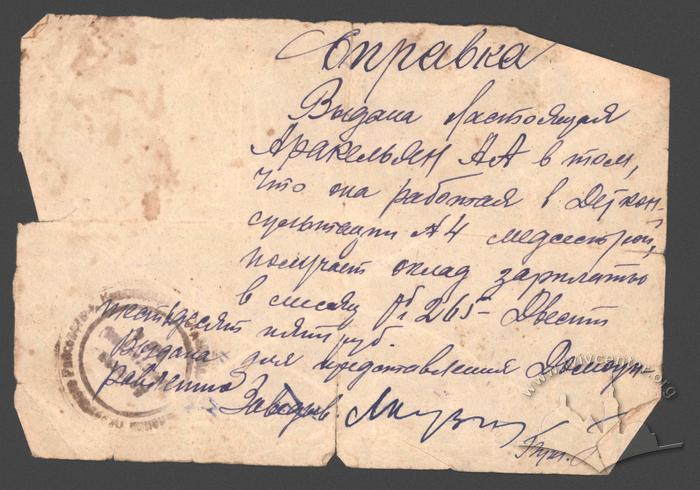 Справка
Выдана настоящая
Аракельян АА в том,
что она работая в Деткон-
сультации №4 медсестрой,
получает оклад зарплаты
в месяц 265 Двести
шестьдесят пять руб.
Выдана для предоставления Домоуп-
равлению
Заведыв.
www.lvivcenter.org